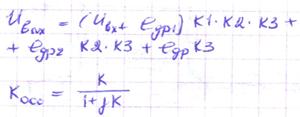 Uвых = (Uвх + eдр1) K1·K2·K3 +
+ eдр2 K2·K3 + eдр K3
Kосс = K / (1+γK)